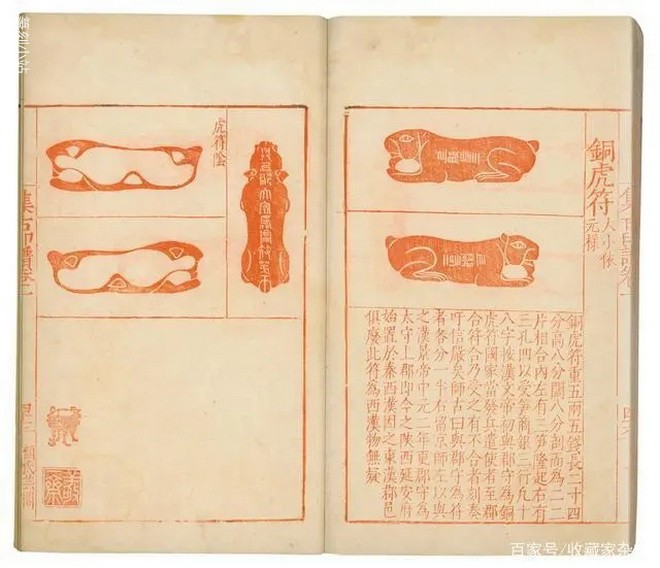 銅虎符
大小依
元樣
銅虎符重五兩五錢長二十四
分高八分闊八分剖而為二二
片相合內左有三笋隆起右有
三孔凹以受笋商銀三行凡十
八字按漢文帝初與郡守為銅
虎符國家當發兵遣使者至郡
合符合乃受之有不合者刻奏
吁信嚴矣師古曰與郡守為符
者各分一半右留京師左以與
之漢景帝中元二年更郡守為
太守上郡即今之陝西延安府
始置於秦西漢因之東漢郡邑
俱廢此符為西漢物無疑
虎符陰
集古印譜卷一
百家号/收藏家杂